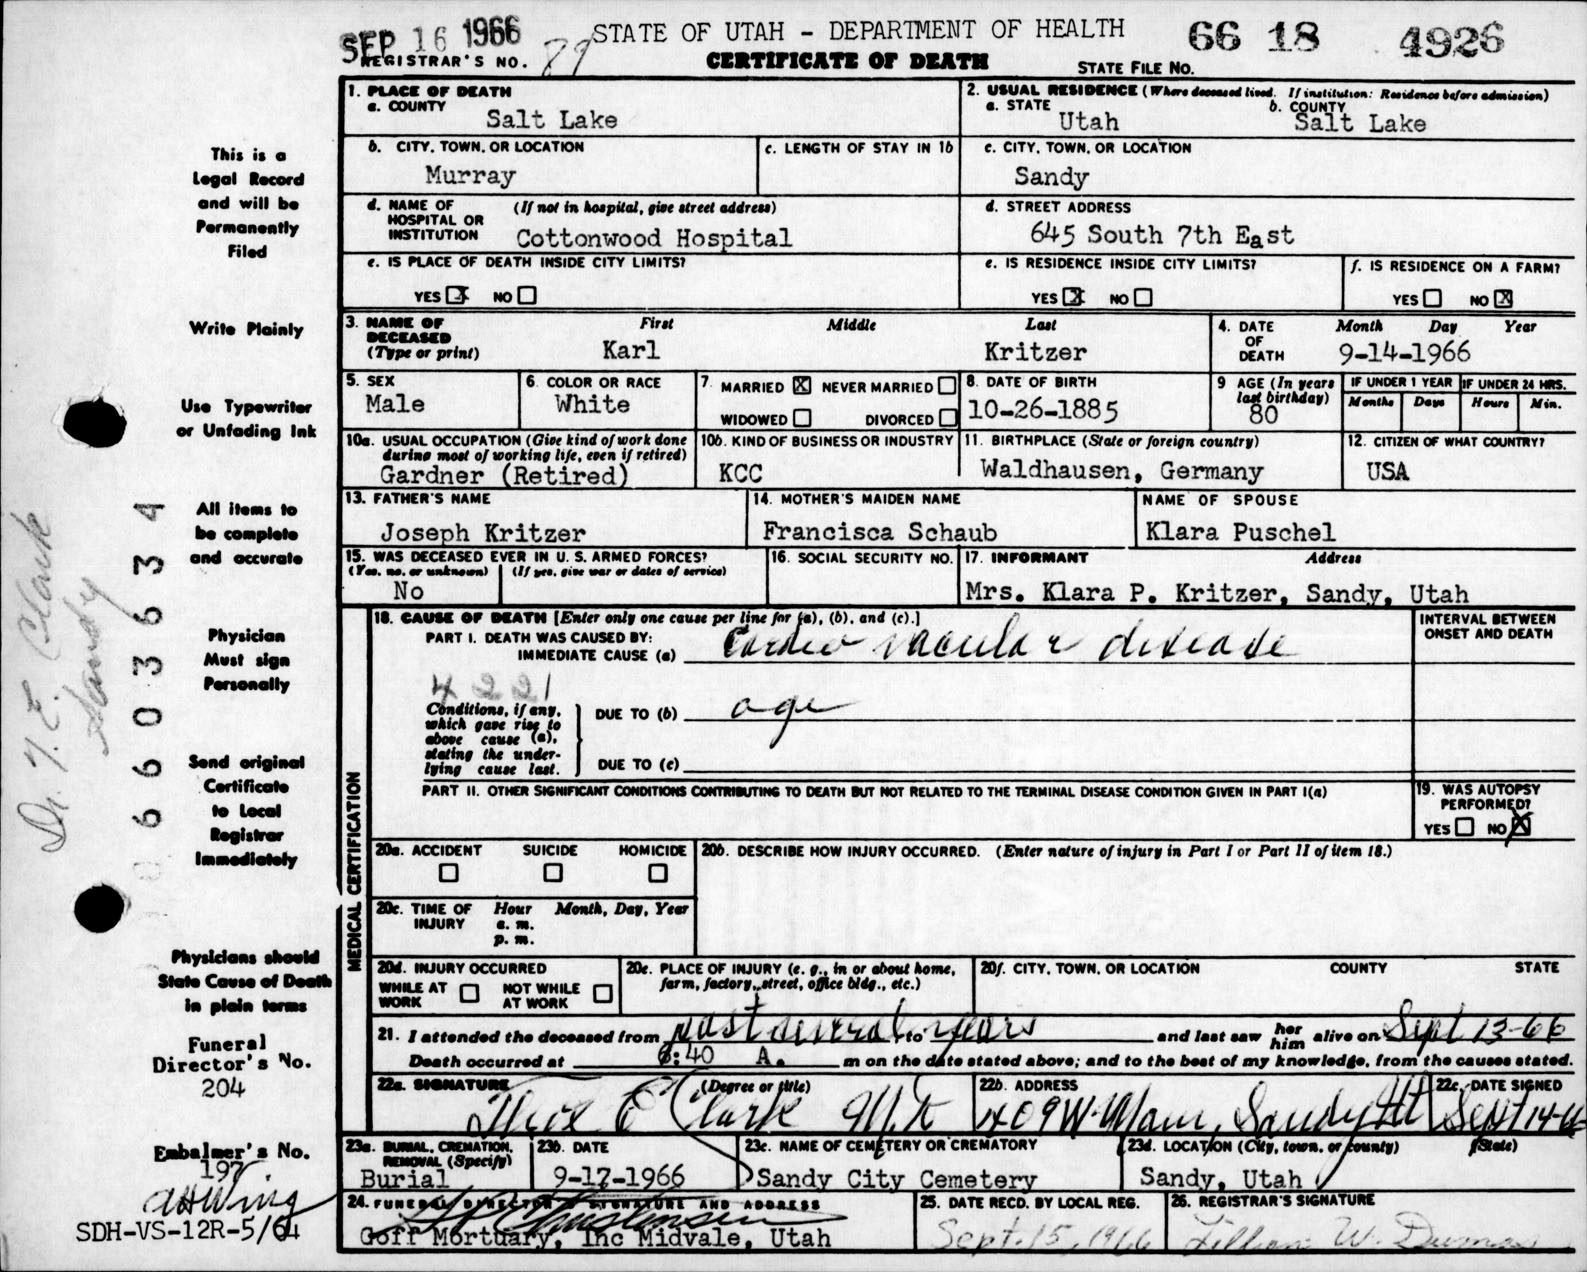 SEP 16 1966
STATE OF UTAH - DEPARTMENT OF HEALTH
66 18 4926
REGISTRAR'S NO. 89
CERTIFICATE OF DEATH
STATE FILE NO.
1. PLACE OF DEATH
a. COUNTY
Salt Lake
2. USUAL RESIDENCE (Where deceased lived. If institution: Residence before admission)
a. STATE b. COUNTY
Utah Salt Lake
b. CITY, TOWN, OR LOCATION
Murray
c. LENGTH OF STAY IN 1b
c. CITY, TOWN, OR LOCATION
Sandy
d. NAME OF HOSPITAL OR INSTITUTION (If not in hospital, give street address)
Cottonwood Hospital
d. STREET ADDRESS
645 South 7th East
e. IS PLACE OF DEATH INSIDE CITY LIMITS?
YES X NO
e. IS RESIDENCE INSIDE CITY LIMITS?
YES X NO
f. IS RESIDENCE ON A FARM?
YES NO X
3. NAME OF DECEASED (Type or print)
First Middle Last
Karl Kritzer
4. DATE OF DEATH
Month Day Year
9-14-1966
5. SEX
Male
6. COLOR OR RACE
White
7. MARRIED X NEVER MARRIED
WIDOWED DIVORCED
8. DATE OF BIRTH
10-26-1885
9 AGE (In years last birthday)
80
IF UNDER 1 YEAR
Months Days
IF UNDER 24 HRS.
Hours Min.
10a. USUAL OCCUPATION (Give kind of work done during most of working life, even if retired)
Gardner (Retired)
10b. KIND OF BUSINESS OR INDUSTRY
KCC
11. BIRTHPLACE (State or foreign country)
Waldhausen, Germany
12. CITIZEN OF WHAT COUNTRY?
USA
13. FATHER'S NAME
Joseph Kritzer
14. MOTHER'S MAIDEN NAME
Francisca Schaub
NAME OF SPOUSE
Klara Puschel
15. WAS DECEASED EVER IN U. S. ARMED FORCES?
(Yes, no, or unknown) (If yes, give war or dates of service)
No
16. SOCIAL SECURITY NO.
17. INFORMANT Address
Mrs. Klara P. Kritzer, Sandy, Utah
MEDICAL CERTIFICATION
18. CAUSE OF DEATH [Enter only one cause per line for (a), (b), and (c).]
PART I. DEATH WAS CAUSED BY:
IMMEDIATE CAUSE (a) Cardio vacular disease
INTERVAL BETWEEN ONSET AND DEATH
4221
Conditions, if any, which gave rise to above cause (a), stating the underlying cause last.
DUE TO (b) age
DUE TO (c)
PART II. OTHER SIGNIFICANT CONDITIONS CONTRIBUTING TO DEATH BUT NOT RELATED TO THE TERMINAL DISEASE CONDITION GIVEN IN PART I(a)
19. WAS AUTOPSY PERFORMED?
YES NO X
20a. ACCIDENT SUICIDE HOMICIDE
20b. DESCRIBE HOW INJURY OCCURRED. (Enter nature of injury in Part I or Part II of item 18.)
20c. TIME OF INJURY Hour Month, Day, Year
a. m.
p. m.
20d. INJURY OCCURRED
WHILE AT WORK NOT WHILE AT WORK
20e. PLACE OF INJURY (e. g., in or about home, farm, factory, street, office bldg., etc.)
20f. CITY, TOWN, OR LOCATION COUNTY STATE
21. I attended the deceased from past several to years and last saw her him alive on Sept 13-66
Death occurred at 8:40 A. m on the date stated above; and to the best of my knowledge, from the causes stated.
22a. SIGNATURE (Degree or title)
Clark M.D.
22b. ADDRESS
409 W. Main, Sandy Ut
22c. DATE SIGNED
Sept 14-66
23a. BURIAL, CREMATION, REMOVAL (Specify)
Burial
23b. DATE
9-17-1966
23c. NAME OF CEMETERY OR CREMATORY
Sandy City Cemetery
23d. LOCATION (City, town, or county) (State)
Sandy, Utah
24. FUNERAL DIRECTOR'S SIGNATURE AND ADDRESS
Goff Mortuary, Inc Midvale, Utah
25. DATE RECD. BY LOCAL REG.
Sept. 15, 1966
26. REGISTRAR'S SIGNATURE
Lillian W.
This is a
Legal Record
and will be
Permanently
Filed
Write Plainly
Use Typewriter
or Unfading Ink
All items to
be complete
and accurate
Physician
Must sign
Personally
Send original
Certificate
to Local
Registrar
Immediately
Physicians should
State Cause of Death
in plain terms
Funeral
Director's No.
204
Embalmer's No.
197
SDH-VS-12R-5/64
Dr. T. E. Clark
Sandy
06603634